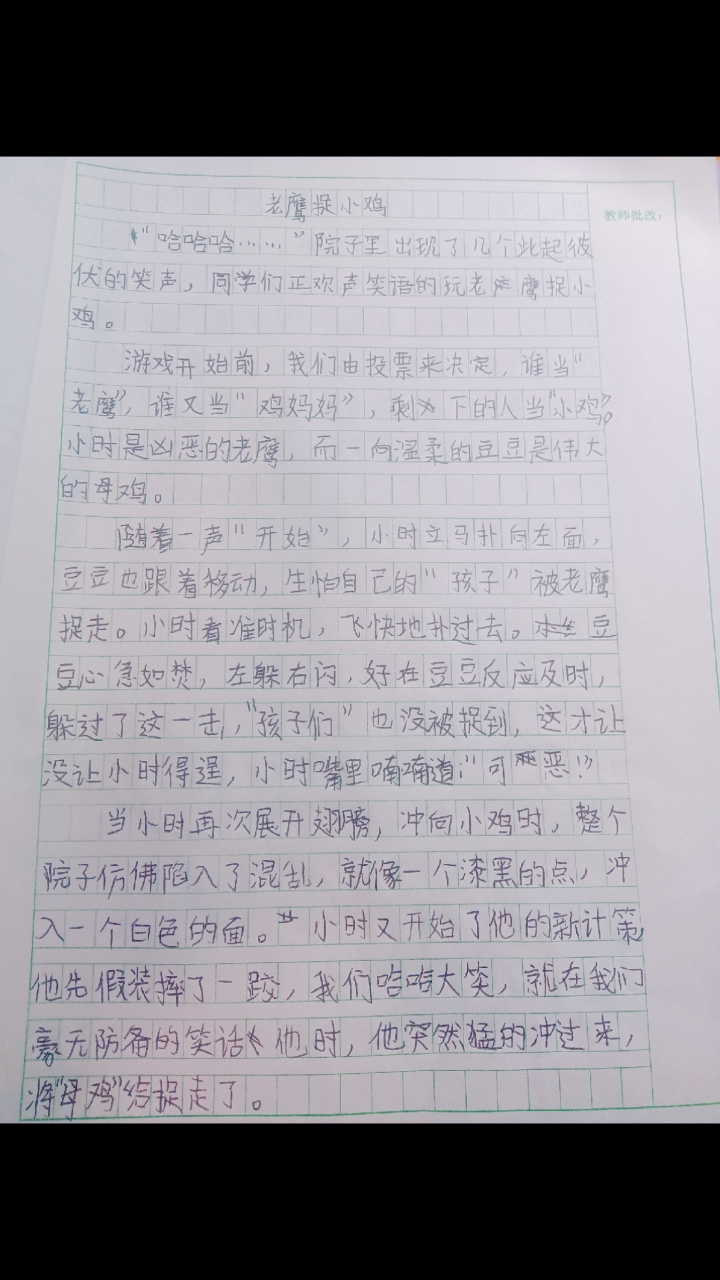 老鹰捉小鸡
教师批改:
“哈哈哈……”院子里出现了几个此起彼
伏的笑声，同学们正欢声笑语的玩老鹰捉小
鸡。
游戏开始前，我们由投票来决定，谁当“
老鹰”，谁又当“鸡妈妈”，剩下的人当“小鸡”。
小时是凶恶的老鹰，而一向温柔的豆豆是伟大
的母鸡。
随着一声“开始”，小时立马扑向左面，
豆豆也跟着移动，生怕自己的“孩子”被老鹰
捉走。小时看准时机，飞快地扑过去。豆
豆心急如焚，左躲右闪，好在豆豆反应及时，
躲过了这一击，“孩子们”也没被捉到，这才让
没让小时得逞，小时嘴里喃喃道：“可恶！”
当小时再次展开翅膀，冲向小鸡时，整个
院子仿佛陷入了混乱，就像一个漆黑的点，冲
入一个白色的面。小时又开始了他的新计策，
他先假装摔了一跤，我们哈哈大笑，就在我们
豪无防备的笑话他时，他突然猛的冲过来，
将“母鸡”给捉走了。